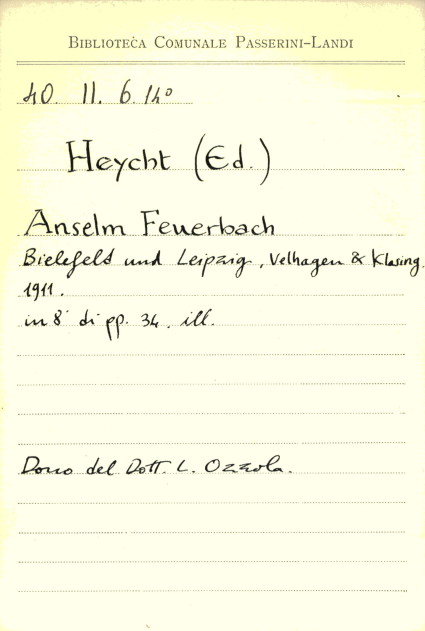 BIBLIOTECA COMUNALE PASSERINI-LANDI
40. II. 6. 14º
Heycht (Ed.)
Anselm Feuerbach
Bielefeld und Leipzig, Velhagen & Klasing.
1911.
in 8º di pp. 34. ill.
Dono del Dott. L. Ozzola.